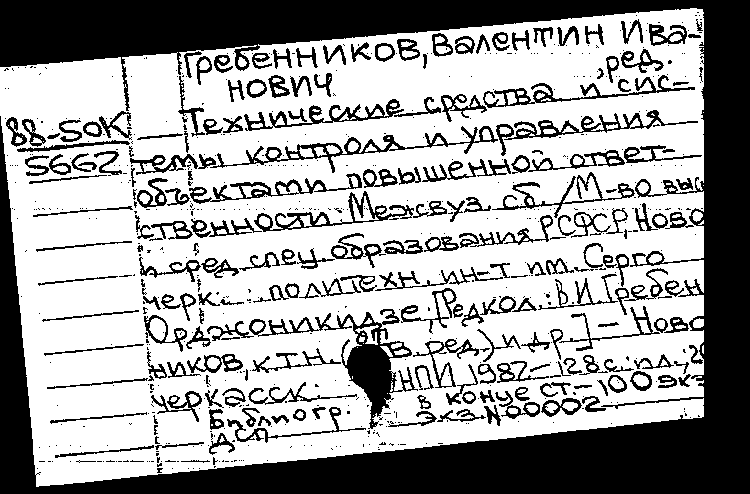 Гребенников, Валентин Ива-
нович, ред.
88-50К
5662
Технические средства и сис-
темы контроля и управления
объектами повышенной ответ-
ственности: Межвуз. сб. / М-во выс
и сред. спец. образования РСФСР, Ново
черк. политехн. ин-т им. Серго
Орджоникидзе; [Редкол.: В.И. Гребен
ников, к.т.н. (от в. ред.) и др.] - Ново
черкасск: НПИ 1987 - 128 с.: ил.; 20
Библиогр. в конце ст. - 100 экз
ДСП экз. N00002